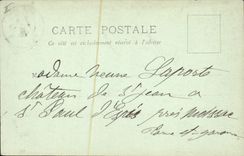 CARTE POSTALE
Ce côté est exclusivement réservé à l'adresse
Madame Veuve Laporte
château de St Jean à
St Paul d'Espis près Moissac
Tarn et garonne